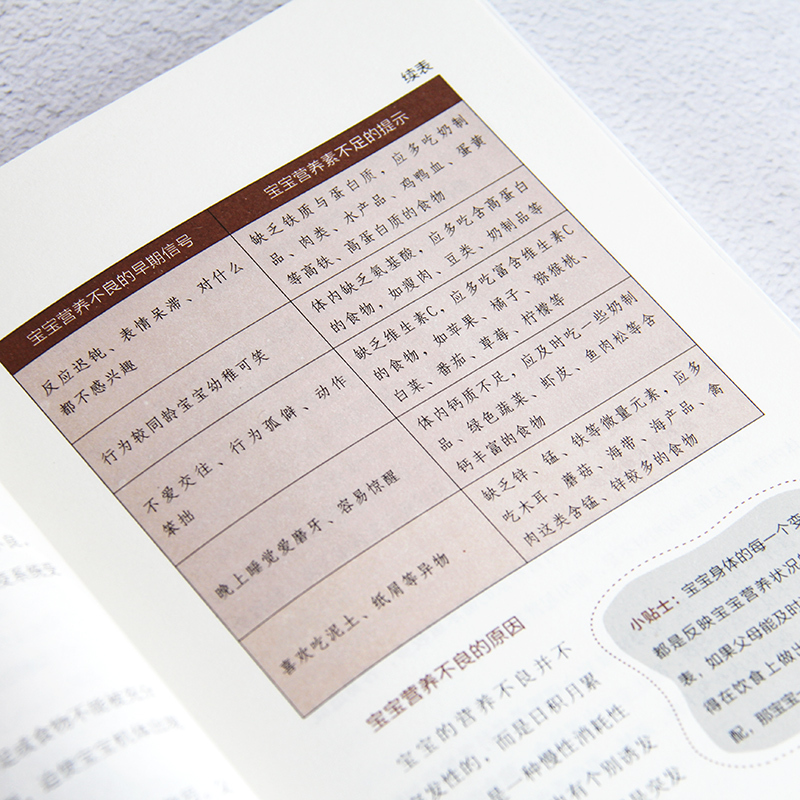 续表
宝宝营养不良的早期信号
宝宝营养素不足的提示
反应迟钝、表情呆滞、对什么
都不感兴趣
缺乏铁质与蛋白质，应多吃奶制
品、肉类、水产品、鸡鸭血、蛋黄
等高铁、高蛋白质的食物
行为较同龄宝宝幼稚可笑
体内缺乏氨基酸，应多吃含高蛋白
的食物，如瘦肉、豆类、奶制品等
不爱交往、行为孤僻、动作
笨拙
缺乏维生素C，应多吃富含维生素C
的食物，如苹果、橘子、猕猴桃、
白菜、番茄、草莓、柠檬等
晚上睡觉爱磨牙、容易惊醒
体内钙质不足，应及时吃一些奶制
品、绿色蔬菜、虾皮、鱼肉松等含
钙丰富的食物
喜欢吃泥土、纸屑等异物
缺乏锌、锰、铁等微量元素，应多
吃木耳、蘑菇、海带、海产品、禽
肉这类含锰、锌较多的食物
宝宝营养不良的原因
宝宝的营养不良并不
突发性的，而是日积月累
是一种慢性消耗性
有个别诱发
突发
小贴士：宝宝身体的每一个变
都是反映宝宝营养状况
表，如果父母能及时
得在饮食上做出
配，那宝宝
成食物不能被
迫使宝宝机体